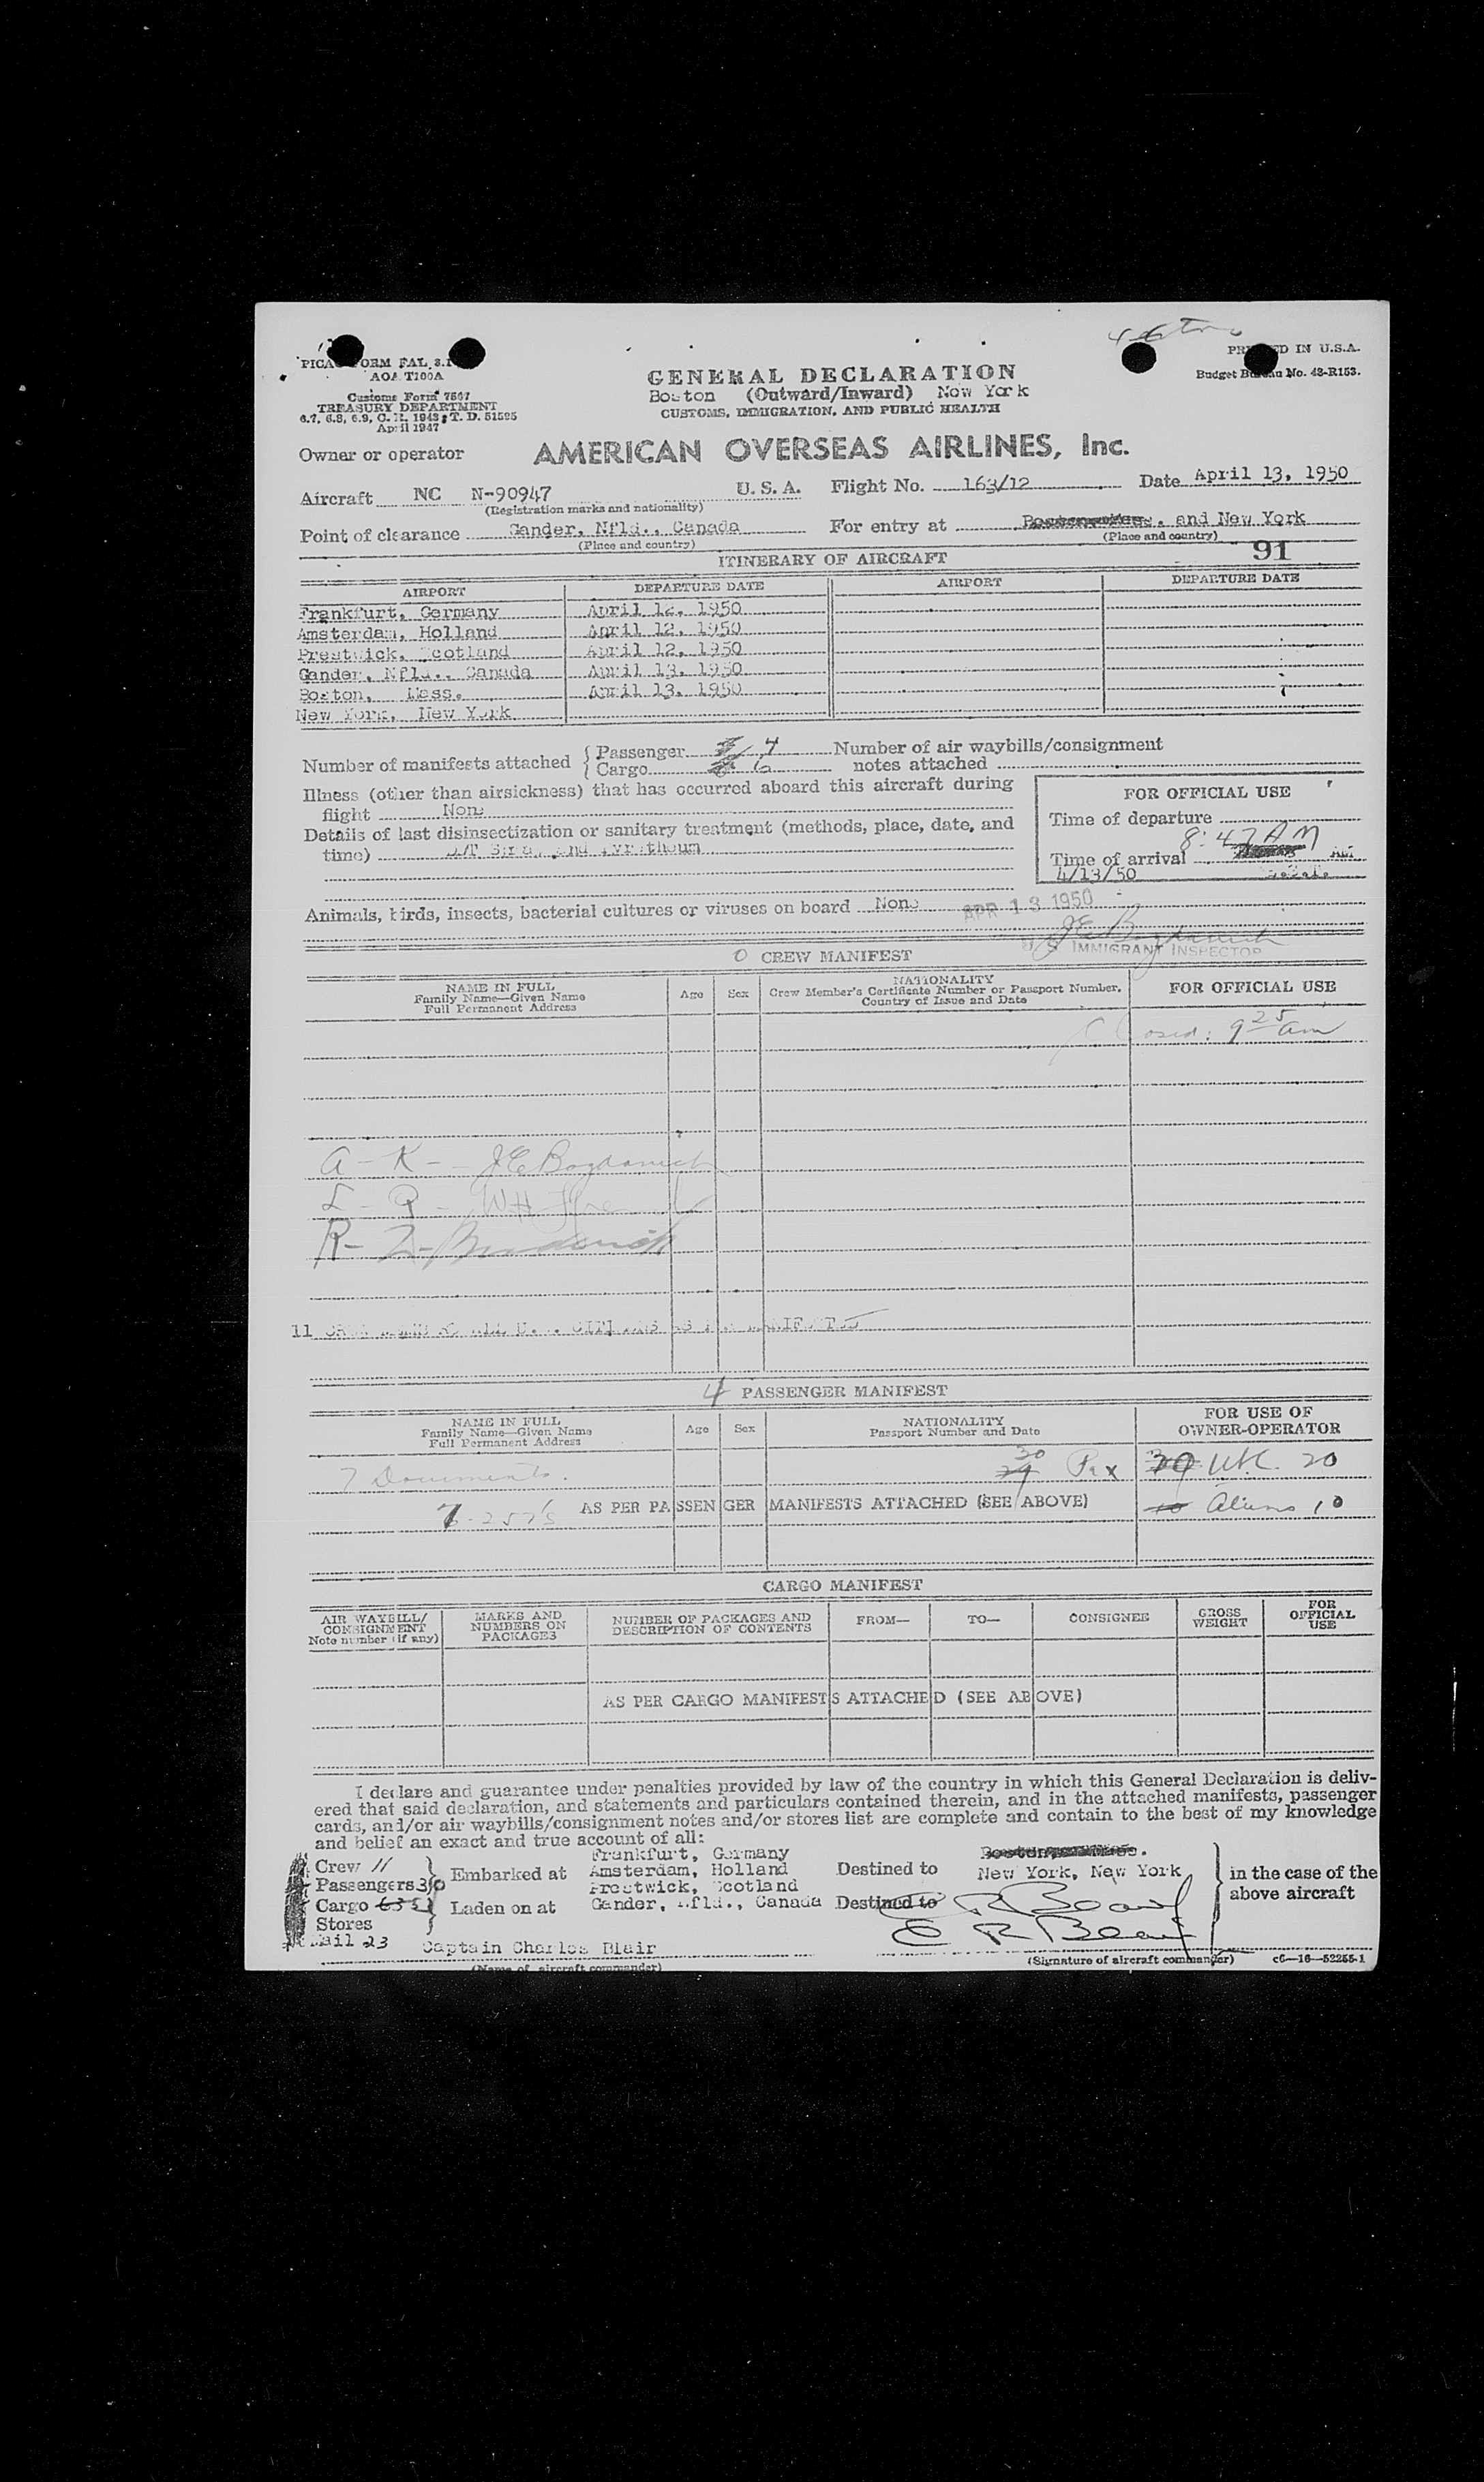 PRINTED IN U.S.A.
PICAO FORM FAL 3.1
AOA T100A
Budget Bureau No. 43-R153.
GENERAL DECLARATION
Boston (Outward/Inward) New York
CUSTOMS, IMMIGRATION, AND PUBLIC HEALTH
Customs Form 7507
TREASURY DEPARTMENT
6.7, 6.8, 6.9, C. R. 1943; T. D. 51595
April 1947
Owner or operator AMERICAN OVERSEAS AIRLINES, Inc.
Aircraft NC N-90947 U. S. A. Flight No. 163/12 Date April 13, 1950
(Registration marks and nationality)
Point of clearance Gander, Nfld., Canada For entry at and New York
(Place and country) (Place and country)
91
ITINERARY OF AIRCRAFT
AIRPORT DEPARTURE DATE AIRPORT DEPARTURE DATE
Frankfurt, Germany April 12, 1950
Amsterdam, Holland April 12, 1950
Prestwick, Scotland April 12, 1950
Gander, Nfld., Canada April 13, 1950
Boston, Mass. April 13, 1950
New York, New York
Number of manifests attached { Passenger 4 Number of air waybills/consignment
Cargo 6 notes attached
Illness (other than airsickness) that has occurred aboard this aircraft during
flight None
FOR OFFICIAL USE
Time of departure
Details of last disinsectization or sanitary treatment (methods, place, date, and
time)
8:47 AM
Time of arrival AM
4/13/50
Animals, birds, insects, bacterial cultures or viruses on board None
APR 13 1950
U S IMMIGRANT INSPECTOR
0 CREW MANIFEST
NAME IN FULL
Family Name—Given Name
Full Permanent Address
Age Sex
NATIONALITY
Crew Member's Certificate Number or Passport Number,
Country of Issue and Date
FOR OFFICIAL USE
Closed: 9 25 am
A - K - J E Bogdanich
L - Q - W H
R - Z -
11 CREW MEMBERS ALL U.S. CITIZENS AS PER MANIFESTS
4 PASSENGER MANIFEST
NAME IN FULL
Family Name—Given Name
Full Permanent Address
Age Sex
NATIONALITY
Passport Number and Date
FOR USE OF
OWNER-OPERATOR
7 Documents. 30 29 Pax 20
7 - 257's AS PER PASSENGER MANIFESTS ATTACHED (SEE ABOVE) 10 Aliens 10
CARGO MANIFEST
AIR WAYBILL/
CONSIGNMENT
Note number (if any)
MARKS AND
NUMBERS ON
PACKAGES
NUMBER OF PACKAGES AND
DESCRIPTION OF CONTENTS
FROM— TO— CONSIGNEE
GROSS
WEIGHT
FOR
OFFICIAL
USE
AS PER CARGO MANIFESTS ATTACHED (SEE ABOVE)
I declare and guarantee under penalties provided by law of the country in which this General Declaration is deliv-
ered that said declaration, and statements and particulars contained therein, and in the attached manifests, passenger
cards, and/or air waybills/consignment notes and/or stores list are complete and contain to the best of my knowledge
and belief an exact and true account of all:
Crew 11
Passengers 30
Cargo
Stores
Mail 23
Embarked at
Laden on at
Frankfurt, Germany
Amsterdam, Holland
Prestwick, Scotland
Gander, Nfld., Canada
Destined to New York, New York
Destined to C R Blair
C R Blair
in the case of the
above aircraft
Captain Charles Blair
(Name of aircraft commander) (Signature of aircraft commander) c6—16—52255-1